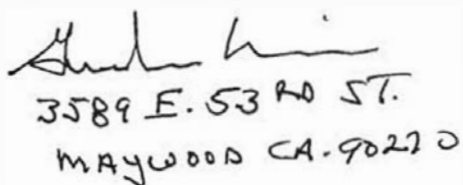 3589 E. 53 RD ST.
MAYWOOD CA. 90270